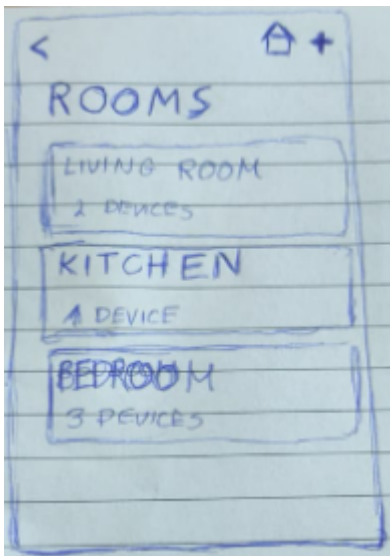 <
+
ROOMS
LIVING ROOM
2 DEVICES
KITCHEN
1 DEVICE
BEDROOM
3 DEVICES